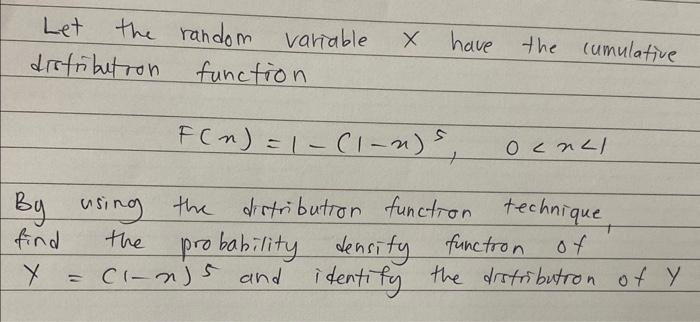 Let the random variable X have the cumulative
distribution function
F(x) = 1 - (1-x)⁵, 0 < x < 1
By using the distribution function technique,
find the probability density function of
Y = (1-x)⁵ and identify the distribution of Y